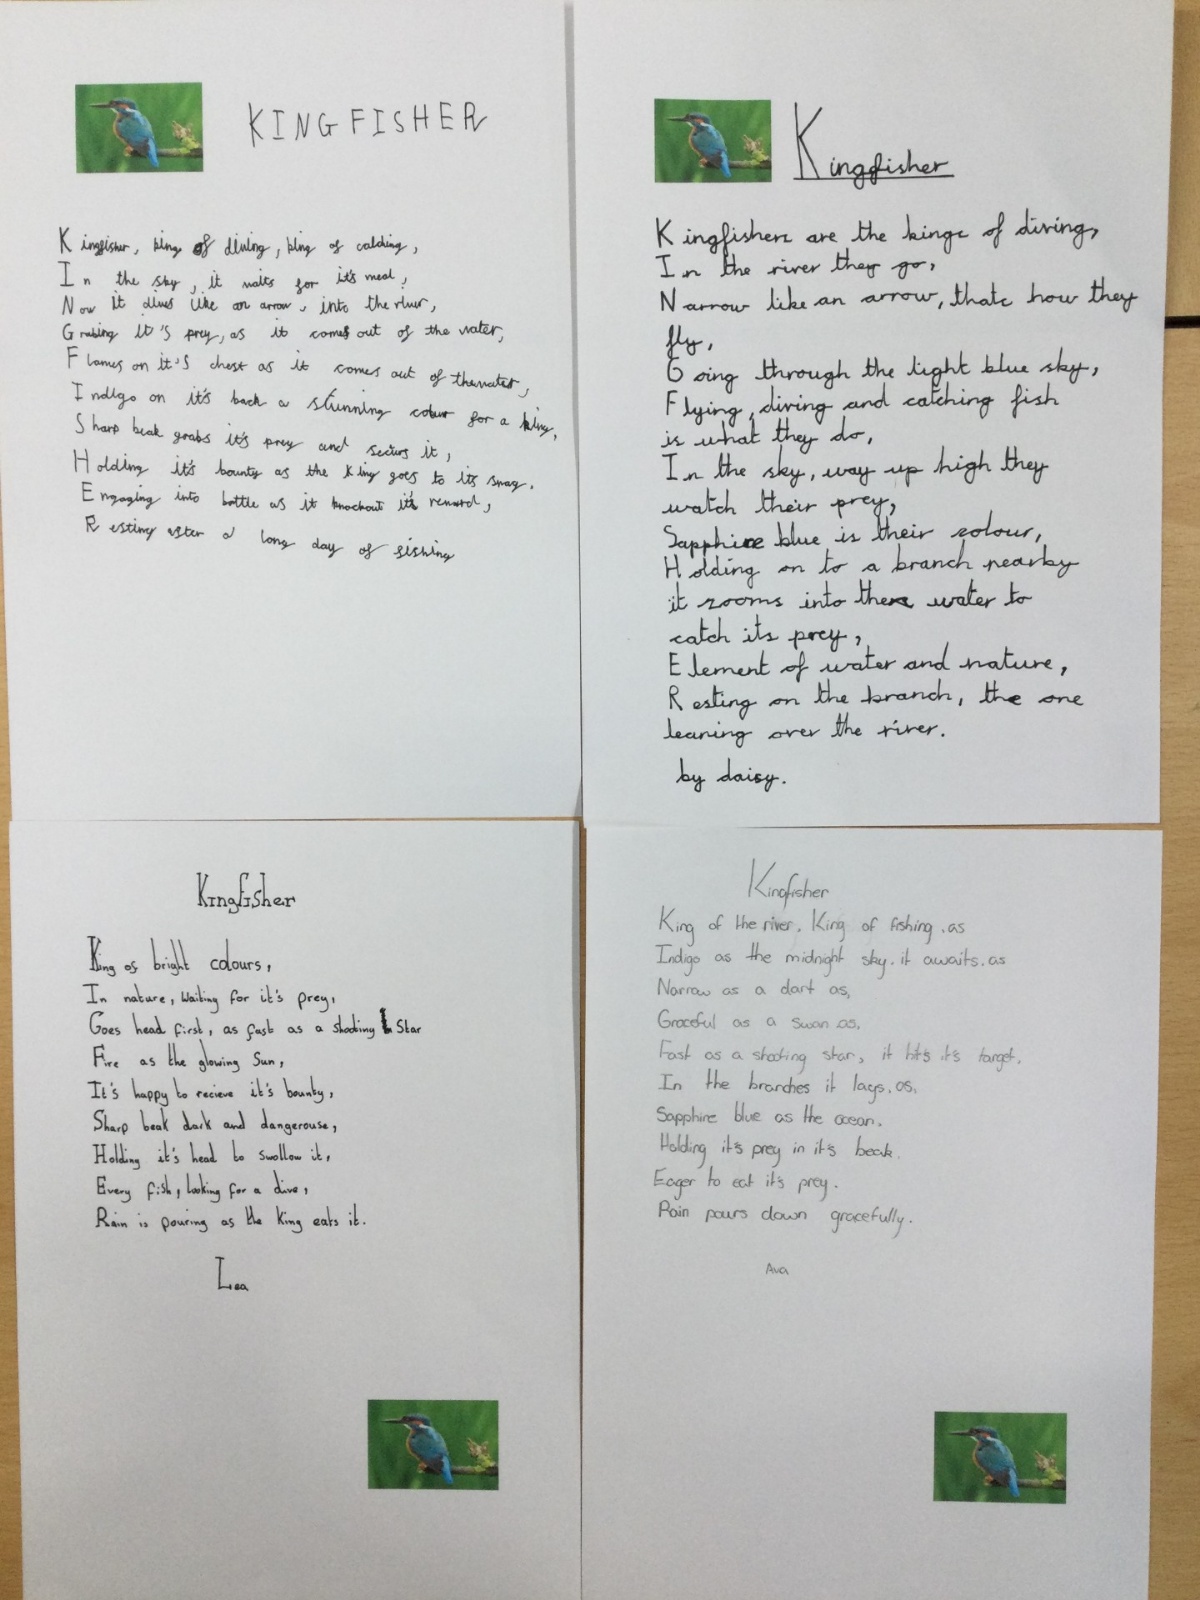 KINGFISHER
Kingfisher, king of diving, king of catching,
In the sky, it waits for it's meal,
Now it dives like an arrow, into the river,
Grabing it's prey, as it comes out of the water,
Flames on it's chest as it comes out of the water,
Indigo on it's back a stunning colour for a king,
Sharp beak grabs it's prey and secures it,
Holding it's bounty as the king goes to its snag.
Engaging into battle as it knockout it's reward,
Resting after a long day of fishing
Kingfisher
Kingfishers are the kings of diving,
In the river they go,
Narrow like an arrow, thats how they
fly,
Going through the light blue sky,
Flying, diving and catching fish
is what they do,
In the sky, way up high they
watch their prey,
Sapphire blue is their colour,
Holding on to a branch nearby
it zooms into the water to
catch its prey,
Element of water and nature,
Resting on the branch, the one
leaning over the river.
by daisy.
Kingfisher
King of bright colours,
In nature, waiting for it's prey,
Goes head first, as fast as a shooting Star
Fire as the glowing Sun,
It's happy to recieve it's bounty,
Sharp beak dark and dangerouse,
Holding it's head to swollow it,
Every fish, looking for a dive,
Rain is pouring as the King eats it.
Lea
Kingfisher
King of the river. King of fishing .as
Indigo as the midnight sky. it awaits. as
Narrow as a dart as,
Graceful as a swan as,
Fast as a shooting star, it hits it's target.
In the branches it lays. as,
Sapphire blue as the ocean.
Holding it's prey in it's beak.
Eager to eat it's prey.
Rain pours down gracefully.
Ava